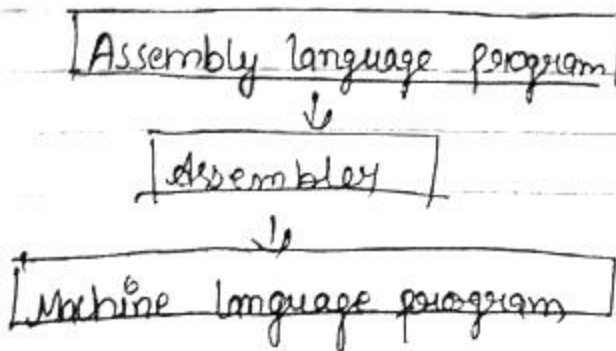 Assembly language program
Assembler
Machine language program